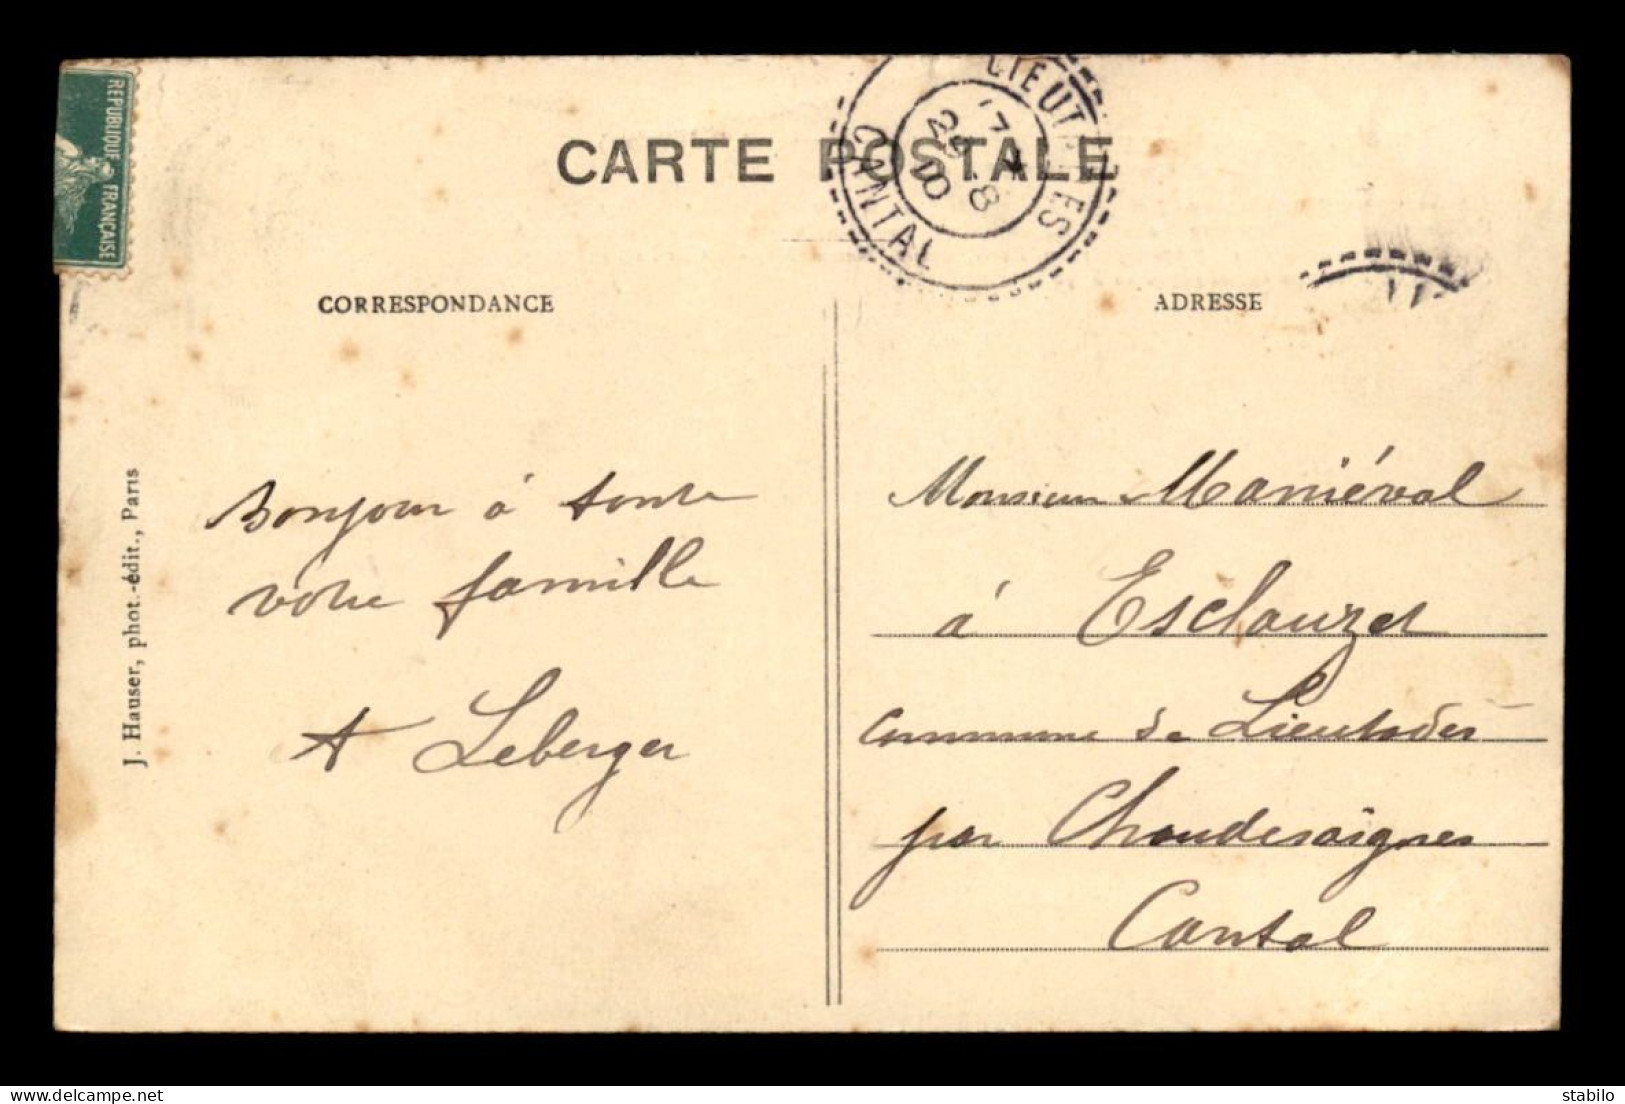 REPUBLIQUE FRANÇAISE
CARTE POSTALE
CANTAL
CORRESPONDANCE
ADRESSE
J. Hauser, phot.-édit., Paris
Bonjour à toute
votre famille
A Leberger
Monsieur Maniéval
à Esclauzet
commune de Lieutadès
par Chaudesaigues
Cantal
delcampe.net stabilo